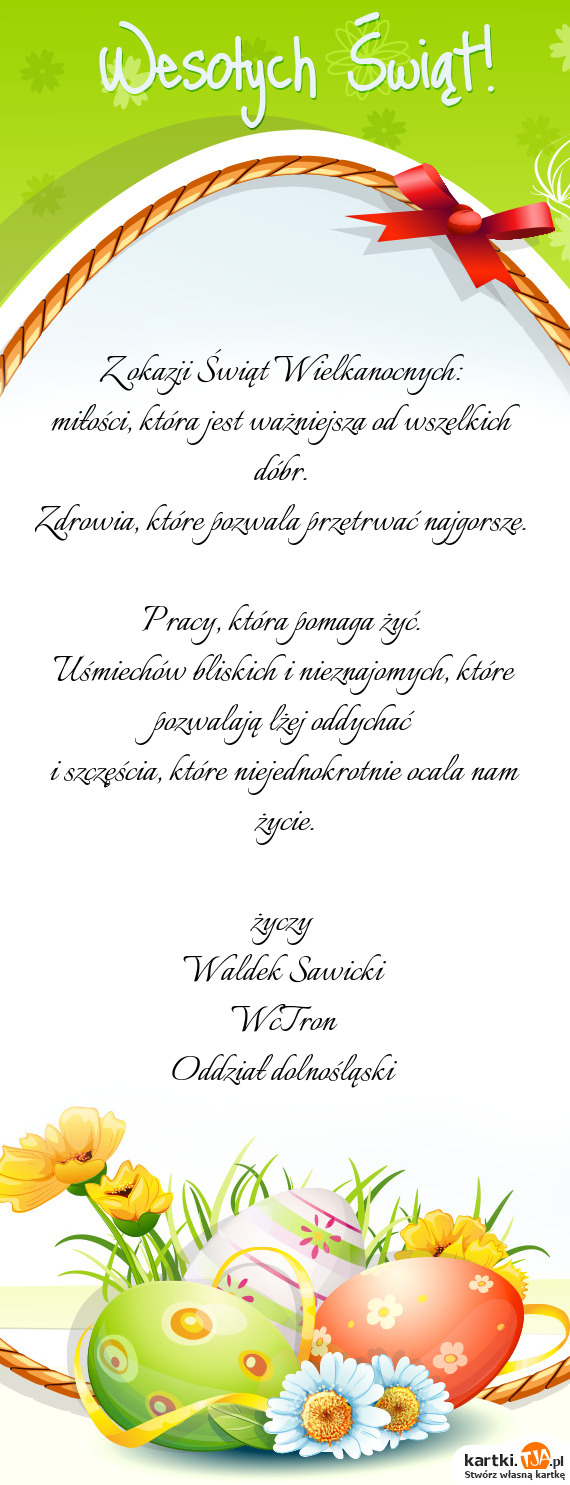 Wesołych Świąt!
Z okazji Świąt Wielkanocnych:
miłości, która jest ważniejsza od wszelkich
dóbr.
Zdrowia, które pozwala przetrwać najgorsze.
Pracy, która pomaga żyć.
Uśmiechów bliskich i nieznajomych, które
pozwalają lżej oddychać
i szczęścia, które niejednokrotnie ocala nam
życie.
życzy
Waldek Sawicki
WcTron
Oddział dolnośląski
kartki.TJA.pl
Stwórz własną kartkę